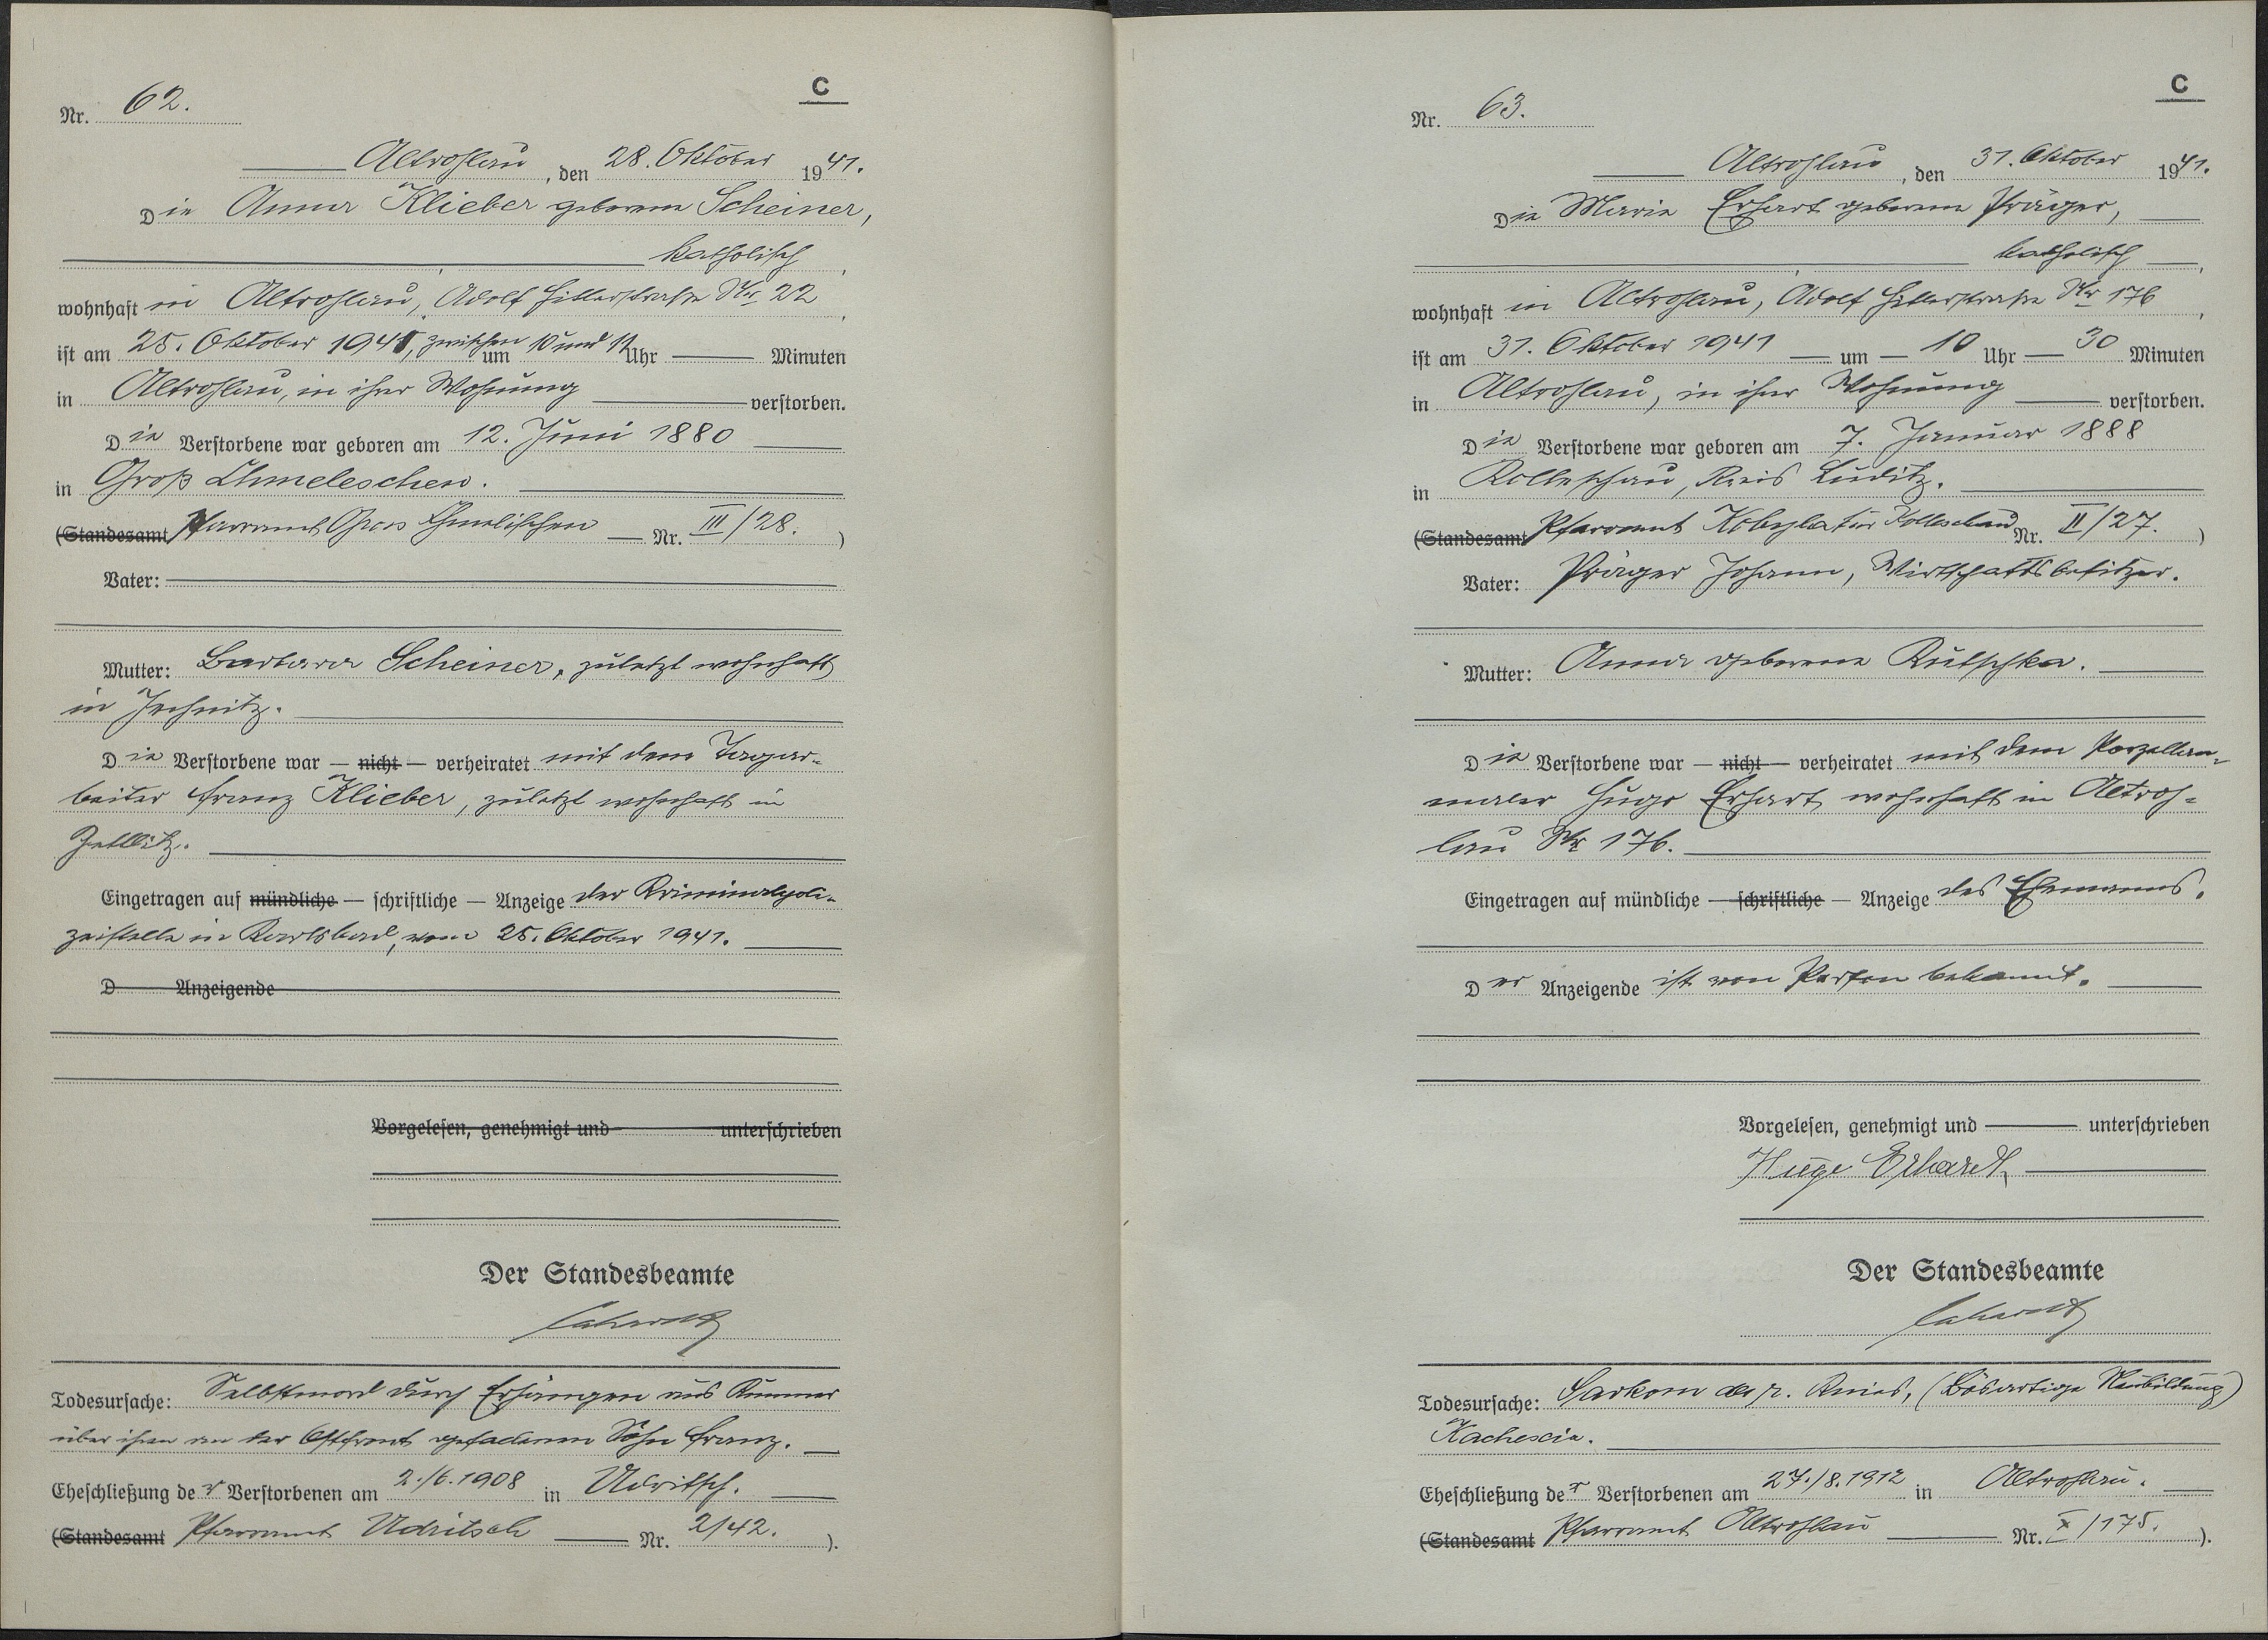 C
Nr. 62.
Altrohlau, den 28. Oktober 1941.
Die Anna Klieber geborene Scheiner,
katholisch,
wohnhaft in Altrohlau, Adolf Hitlerstraße Nr. 22,
ist am 25. Oktober 1941, zwischen um 10 und 11 Uhr Minuten
in Altrohlau, in ihrer Wohnung verstorben.
Die Verstorbene war geboren am 12. Juni 1880
in Groß Chmeleschen.
(Standesamt Pfarramt Gross Chmelischen — Nr. III/28. )
Vater:
Mutter: Barbara Scheiner, zuletzt wohnhaft
in Jechnitz.
Die Verstorbene war — nicht — verheiratet mit dem Tagar-
beiter Franz Klieber, zuletzt wohnhaft in
Zettlitz.
Eingetragen auf mündliche — schriftliche — Anzeige der Kriminalpoli-
zeistelle in Karlsbad, vom 25. Oktober 1941.
D Anzeigende
Vorgelesen, genehmigt und unterschrieben
Der Standesbeamte
Todesursache: Selbstmord durch Erhängen aus Kummer
über ihren an der Ostfront gefallenen Sohn Franz.
Eheschließung der Verstorbenen am 2./6.1908 in Udritsch.
(Standesamt Pfarramt Udritsch — Nr. 2/42. ).
C
Nr. 63.
Altrohlau, den 31. Oktober 1941.
Die Maria Erhart geborene Präger,
katholisch,
wohnhaft in Altrohlau, Adolf Hitlerstraße Nr 176,
ist am 31. Oktober 1941 — um — 10 Uhr — 30 Minuten
in Altrohlau, in ihrer Wohnung verstorben.
Die Verstorbene war geboren am 7. Januar 1888
in Kolleschau, Kreis Luditz.
(Standesamt Pfarramt Kobyla für Kolleschau Nr. II/27. )
Vater: Präger Johann, Wirtschaftsbesitzer.
Mutter: Anna geborene Kutschka.
Die Verstorbene war — nicht — verheiratet mit dem Porzellan-
maler Hugo Erhart, wohnhaft in Altroh-
lau Nr 176.
Eingetragen auf mündliche — schriftliche — Anzeige des Ehemanns.
Der Anzeigende ist von Person bekannt.
Vorgelesen, genehmigt und unterschrieben
Hugo Erhardt
Der Standesbeamte
Todesursache: Sarkom des r. Knies, (Bösartige Neubildung)
Kachexia.
Eheschließung der Verstorbenen am 27./8.1912 in Altrohlau.
(Standesamt Pfarramt Altrohlau — Nr. X/175. ).